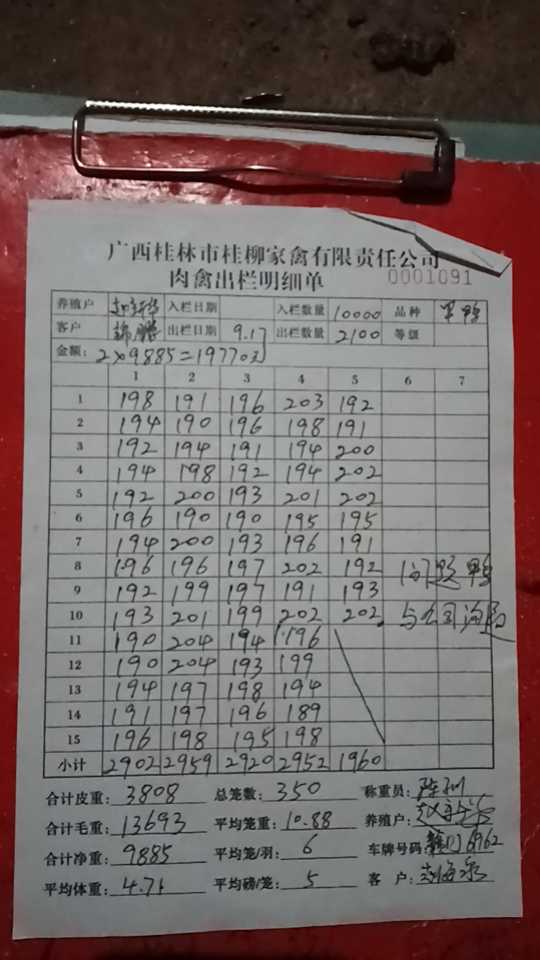 广西桂林市桂柳家禽有限责任公司
肉禽出栏明细单
0001091
养殖户 入栏日期 入栏数量 10000 品种
客户 出栏日期 9.17 出栏数量 2100 等级
金额: 2×9885=19770元
1 2 3 4 5 6 7
1 198 191 196 203 192
2 194 190 196 198 191
3 192 194 191 194 200
4 194 198 192 194 202
5 192 200 193 201 202
6 196 190 190 195 195
7 194 200 193 196 191
8 196 196 197 202 192 问题鸭
9 192 199 197 191 193
10 193 201 199 202 202 与公司沟通
11 190 204 194 196
12 190 204 193 199
13 194 197 198 194
14 191 197 196 189
15 196 198 195 198
小计 2902 2959 2920 2952 1960
合计皮重: 3808 总笼数: 350 称重员:
合计毛重: 13693 平均笼重: 10.88 养殖户:
合计净重: 9885 平均笼/羽: 6 车牌号码:
平均体重: 4.71 平均磅/笼: 5 客户: